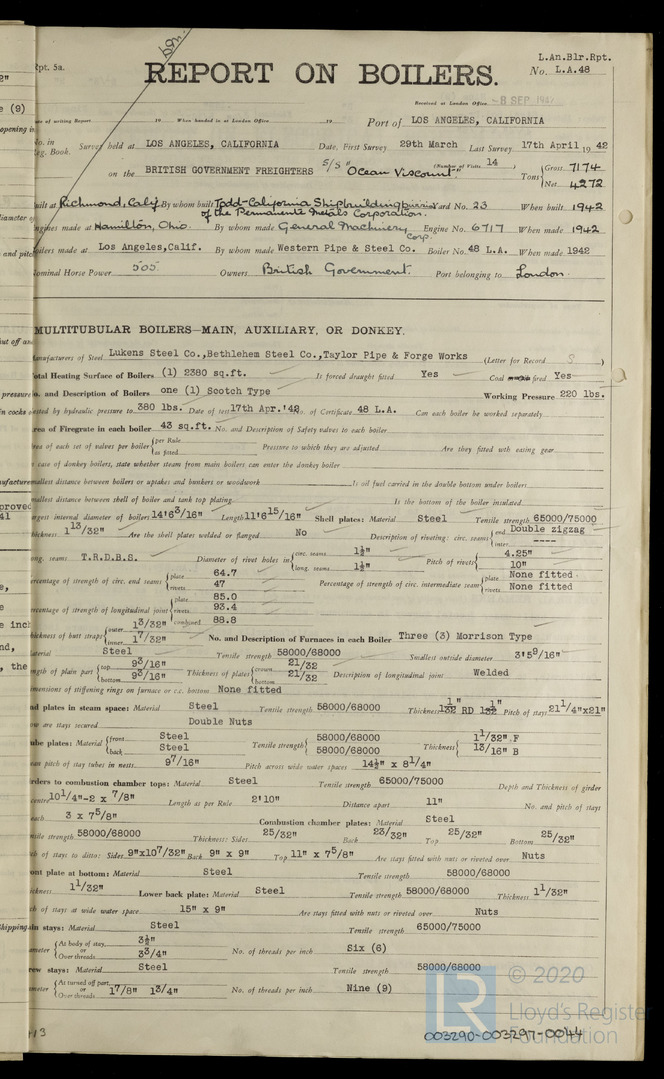 L.An.Blr.Rpt.
Rpt. 5a.
No. L.A.48
REPORT ON BOILERS.
Received at London Office -8 SEP 194
of writing Report 19 When handed in at London Office 19 Port of LOS ANGELES, CALIFORNIA
No. in Reg. Book. Survey held at LOS ANGELES, CALIFORNIA Date, First Survey 29th March Last Survey 17th April 19 42
on the BRITISH GOVERNMENT FREIGHTERS S/S "Ocean Viscount." (Number of Visits 14 ) Tons { Gross 7174 Net 4272
Built at Richmond, Calif. By whom built Todd-California Shipbuilding of the Permanente Metals Corporation. Yard No. 23 When built 1942
Engines made at Hamilton, Ohio. By whom made General Machinery Corp. Engine No. 6717 When made 1942
Boilers made at Los Angeles, Calif. By whom made Western Pipe & Steel Co. Boiler No. 48 L.A. When made 1942
Nominal Horse Power 505. Owners British Government. Port belonging to London.
MULTITUBULAR BOILERS—MAIN, AUXILIARY, OR DONKEY.
Manufacturers of Steel Lukens Steel Co.,Bethlehem Steel Co.,Taylor Pipe & Forge Works (Letter for Record S )
Total Heating Surface of Boilers (1) 2380 sq.ft. Is forced draught fitted Yes Coal fired Yes
No. and Description of Boilers one (1) Scotch Type Working Pressure 220 lbs.
Tested by hydraulic pressure to 380 lbs. Date of test 17th Apr.'42 No. of Certificate 48 L.A. Can each boiler be worked separately
Area of Firegrate in each boiler 43 sq.ft. No. and Description of Safety valves to each boiler
Area of each set of valves per boiler { per Rule as fitted Pressure to which they are adjusted Are they fitted with easing gear
In case of donkey boilers, state whether steam from main boilers can enter the donkey boiler
Smallest distance between boilers or uptakes and bunkers or woodwork Is oil fuel carried in the double bottom under boilers
Smallest distance between shell of boiler and tank top plating Is the bottom of the boiler insulated
Largest internal diameter of boilers 14'6 3/16" Length 11'6 15/16" Shell plates: Material Steel Tensile strength 65000/75000
Thickness 1 13/32" Are the shell plates welded or flanged No Description of riveting: circ. seams { end Double zigzag inter. ----
long. seams T.R.D.B.S. Diameter of rivet holes in { circ. seams 1½" long. seams 1½" Pitch of rivets { 4.25" 10"
Percentage of strength of circ. end seams { plate 64.7 rivets 47 Percentage of strength of circ. intermediate seam { plate None fitted. rivets None fitted
Percentage of strength of longitudinal joint { plate 85.0 rivets 93.4 combined 88.8
Thickness of butt straps { outer 1 3/32" inner 1 7/32" No. and Description of Furnaces in each Boiler Three (3) Morrison Type
Material Steel Tensile strength 58000/68000 Smallest outside diameter 3'5 9/16"
Length of plain part { top 9 3/16" bottom 9 3/16" Thickness of plates { crown 21/32 bottom 21/32 Description of longitudinal joint Welded
Dimensions of stiffening rings on furnace or c.c. bottom None fitted
End plates in steam space: Material Steel Tensile strength 58000/68000 Thickness 1 1/32" RD 1 1/32" Pitch of stays 21¼"x21"
How are stays secured Double Nuts
Tube plates: Material { front Steel back Steel Tensile strength { 58000/68000 58000/68000 Thickness { 1 1/32".F 13/16" B
Mean pitch of stay tubes in nests 9 7/16" Pitch across wide water spaces 14½" x 8¼"
Girders to combustion chamber tops: Material Steel Tensile strength 65000/75000 Depth and Thickness of girder
centre 10¼"-2 x 7/8" Length as per Rule 2'10" Distance apart 11" No. and pitch of stays
each 3 x 7 5/8" Combustion chamber plates: Material Steel
Tensile strength 58000/68000 Thickness: Sides 25/32" Back 23/32" Top 25/32" Bottom 25/32"
Pitch of stays to ditto: Sides 9"x10 7/32" Back 9" x 9" Top 11" x 7 5/8" Are stays fitted with nuts or riveted over Nuts
Front plate at bottom: Material Steel Tensile strength 58000/68000
Thickness 1 1/32" Lower back plate: Material Steel Tensile strength 58000/68000 Thickness 1 1/32"
Pitch of stays at wide water space 15" x 9" Are stays fitted with nuts or riveted over Nuts
Main stays: Material Steel Tensile strength 65000/75000
Diameter { At body of stay, or Over threads 3½" 3 3/4" No. of threads per inch Six (6)
Screw stays: Material Steel Tensile strength 58000/68000
Diameter { At turned off part, or Over threads 1 7/8" 1 3/4" No. of threads per inch Nine (9)
© 2020
LR Lloyd's Register Foundation
003290-003297-0044